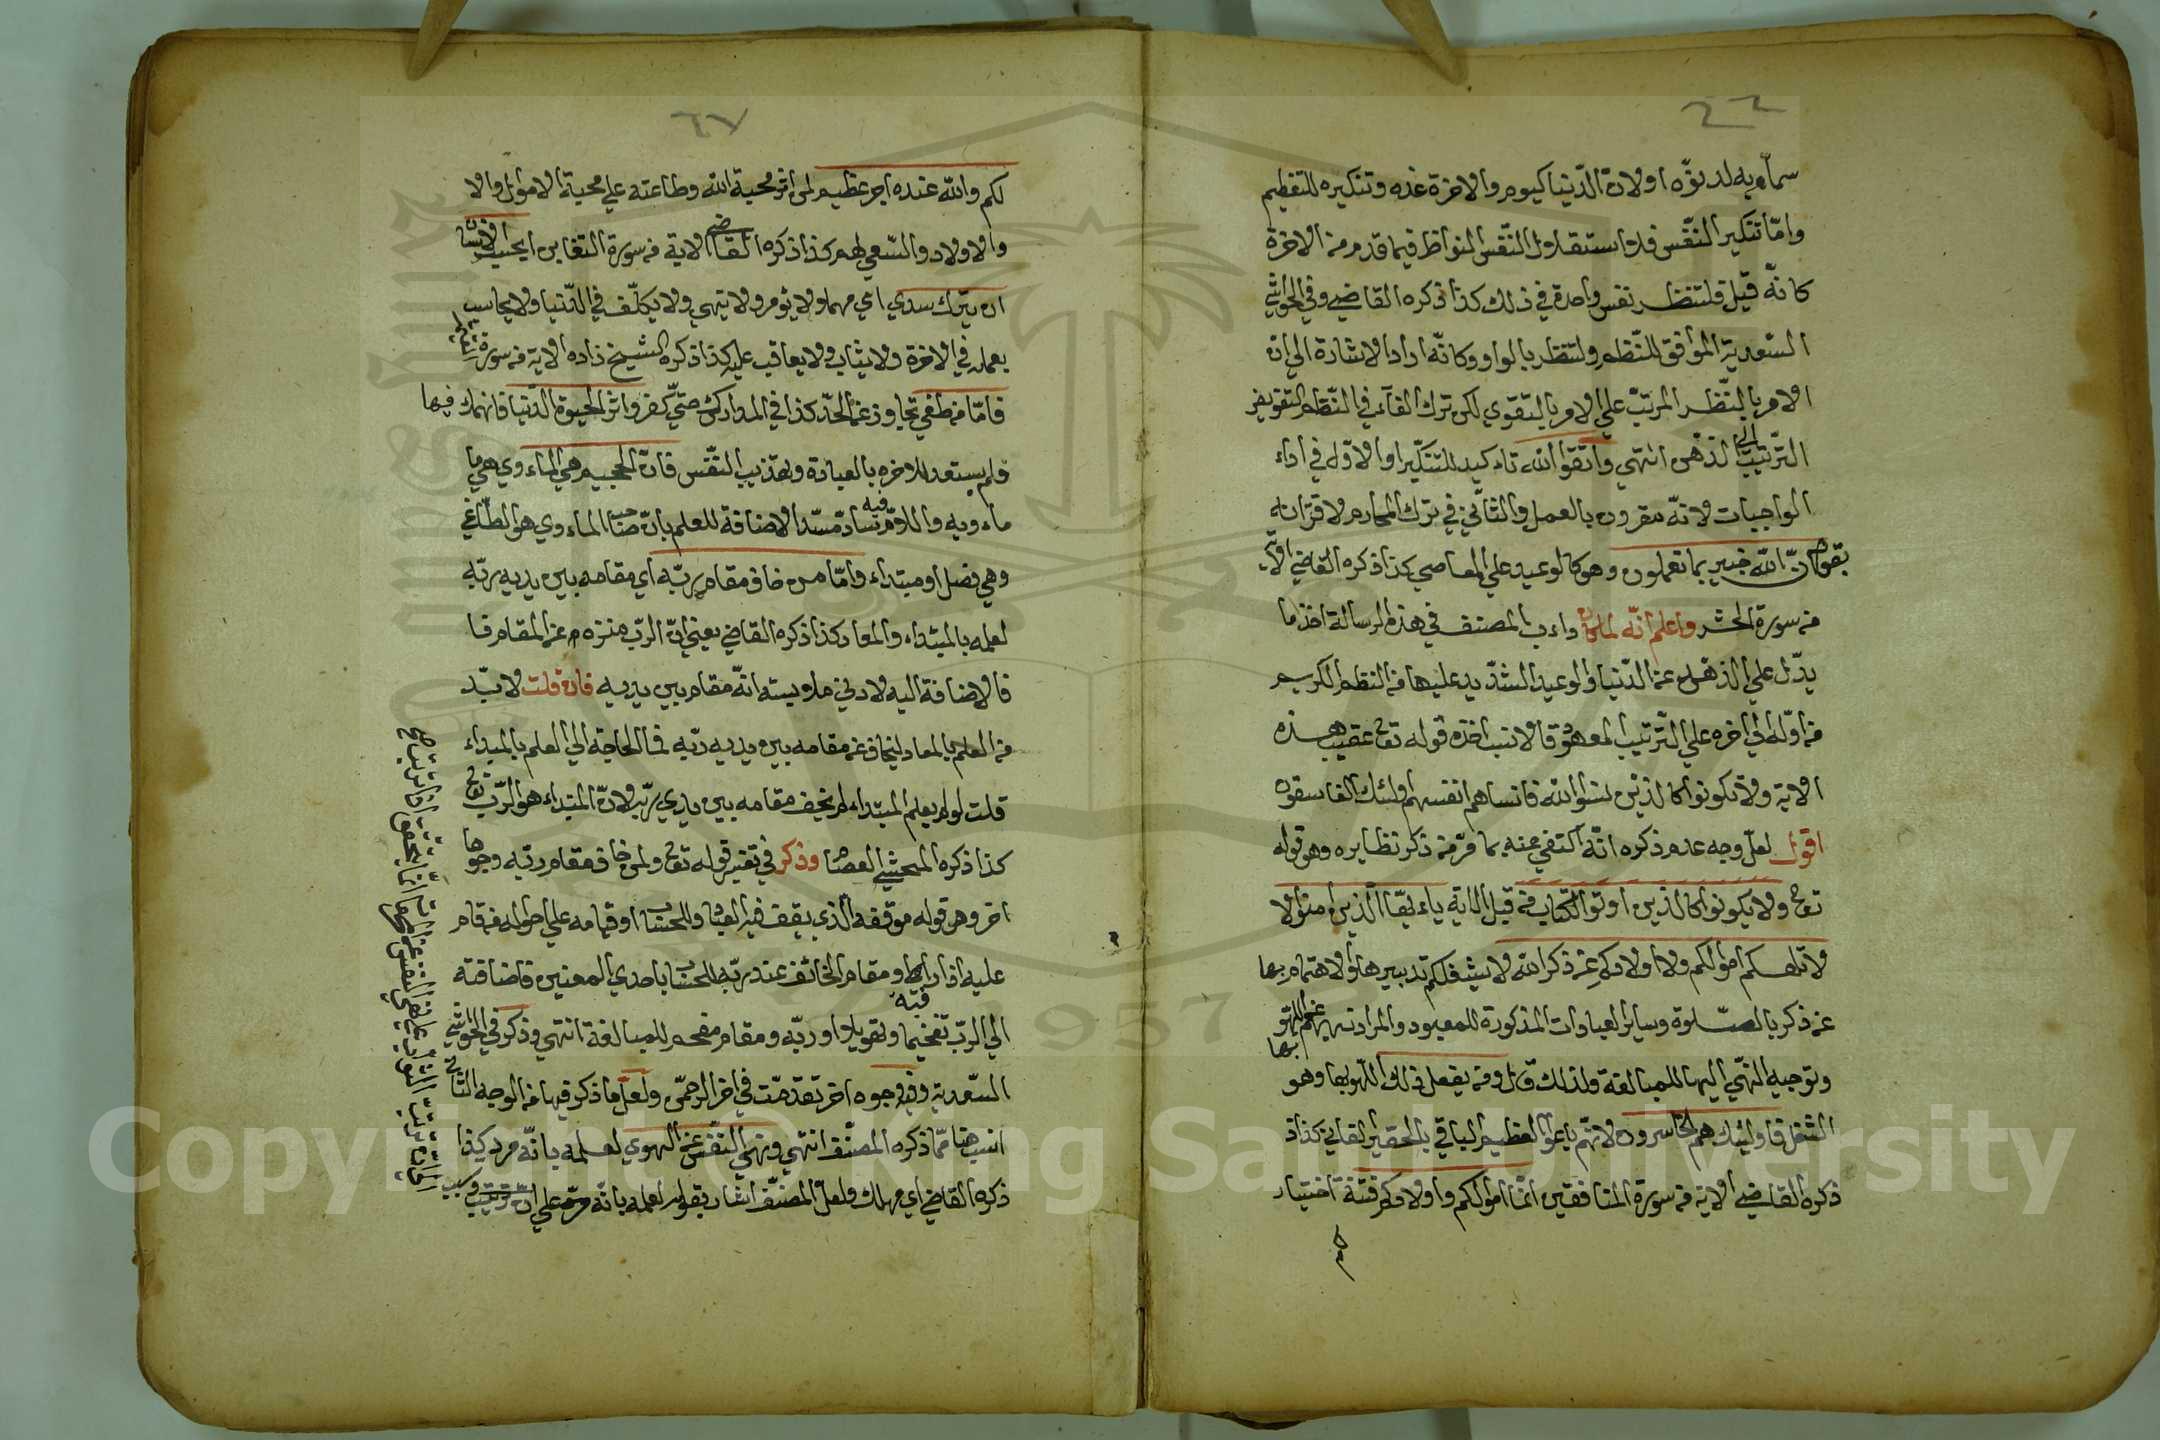 ٦٦
سماه به لدنوّه او لان الدّنيا كيوم والاخرة غده وتنكيره للتعظيم
وامّا تنكير النفّس فلاستقلال النّفس النواظر فيما قدم من الاخرة
كانّه قيل فلتنظر نفس واحدة في ذلك كذا ذكره القاضي وفي الحواشي
السّعدية الموافق للنّظم ولتنظر بالواو وكانّه اراد الاشارة الي ان
الامر بالنّظر المرتب علي الامر بالتقوي لكن ترك الفاء في النّظم لتفويض
التّرتيب الي الذهن انتهي واتقوا الله تاكيد للتنكير او الاوّل في اداء
الواجبات لانّه مقرون بالعمل والثّاني في ترك المحارم لاقترانه
بقوله انّ الله خبير بما تعملون وهو كالوعيد علي المعاصي كذا ذكره القاضي الاية
من سورة الحشر واعلم انّه لما كان داءب المصنف في هذه الرسالة اخذ ما
يدّل علي الذهل عن الدّنيا والوعيد الشّديد عليها من النظم الكريم
من اوّله الي اخره علي التّرتيب المعهود فالانسب اخذه قوله تعالى عقيب هذه
الاية ولا تكونوا كالذين نسوا الله فانساهم انفسهم اولئك الفاسقون
اقول لعلّ وجه عدم ذكره انّه اكتفي عنه بما مرّ من ذكر نظايره وهو قوله
تعالى ولا يكونوا كالذين اوتوا الكتاب من قبل الاية ياءيهّا الذين امنوا لا
لا تلهكم اموالكم ولا اولادكم عن ذكر الله لا يشغلكم تدبيرها والاهتمام بها
عن ذكر بالصّلوة وساير العبادات المذكورة للمعبود والمراد نهيهم عن اللهو بها
وتوجيه النهي اليها للمبالغة ولذلك قال ومن يفعل ذلك اللهو بها وهو
الشغل فاولئك هم الخاسرون لانّهم باعوا العظيم الباقي بالحقير الفاني كذا ذ
ذكره القاضي الاية من سورة المنافقين انّما اموالكم واولادكم فتنة اختبار
لكم
٦٧
لكم والله عنده اجر عظيم لمن اثر محبة الله وطاعته علي محبة الاموال والا
والاولاد والسّعي لهم كذا ذكره القاضي الاية من سورة التغابن ايحسب الانسان
ان يترك سدي اي مهملا ولا يؤمر ولا ينهي ولا يكلّف في الدّنيا ولا يحاسب
بعمله في الاخرة ولا يثاب ولا يعاقب عليه كذا ذكره الشيخ زاده الاية من سورة القيمة
فامّا من طغي تجاوز عن الحدّ كذا في المدارك حتيّ كفر واثر الحيوة الدّنيا فانهمك فيها
ولم يستعد للاخره بالعبادة وتهذيب النّفس فانّ الجحيم هي الماءوي هي ما
ماءويه واللام فيه سادّ مسّد الاضافة للعلم بانّ صاحب الماءوي هو الطّاغي
وهي فصل او مبتداء وامّا من خاف مقام ربّه اي مقامه بين يديه ربّه
لعلمه بالمبتداء والمعاد كذا ذكره القاضي يعني انّ الربّ منزه عن المقام فا
فالاضافة اليه لادني ملابسته انّه مقام بين يديه فان قلت لا بدّ
من العلم بالمعاد ليخاف عن مقامه بين يديه ربّه فما الحاجة الي العلم بالمبداء
قلت لو لم يعلم المبتداء لم يخف مقامه بين يدي ربّه لانّ المبتداء هو الرّب تعالى
كذا ذكره المحشي العصام وذكر في تفسير قوله تعالى ولمن خاف مقام ربّه وجوها
اخر وهو قوله موقفه الّذي يقف فيه العباد للحساب او قيامه علي احواله من قام
عليه اذا راقبه او مقام الخائف عند ربّه للحساب باحدي المعنيين فاضافته
الي الربّ تفخيما وتهويلا او ربّه ومقام مقحم للمبالغة انتهي وذكر في الحواشي
السّعدية وفيه وجوه اخر تقدّمت في اخر الرحمن ولعلّ ما ذكر فيها من الوجه الثاني
انسب هنا ممّا ذكره المصنّف انتهي ونهي النّفس عن الهوي لعلمه بانّه مرد كذا
ذكره القاضي اي مهلك ولعلّ المصنّف اشار بقوله لعلمه بانّه مرد علي انّ ترتيب